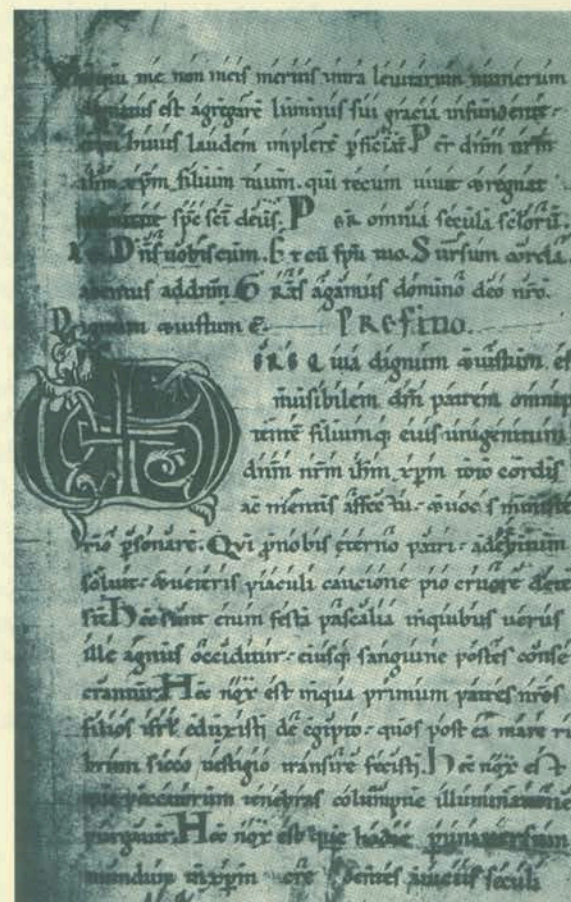 me non meis meritis intra leuitarum numerum
dignatus est agregare luminis sui gracia infundente
laudem implere pficiat. Per dnm nrm
ihm xpm filium tuum. qui tecum uiuit & regnat
sps sci deus. Per omnia secula sclorum.
Dns uobiscum. Et cu spu tuo. Sursum corda.
addnm Gras agamus domino deo nro.
Dignum & iustum e. Prefatio.
uia dignum & iustum est
inuisibilem dm patrem omnip
tente filiumq; eius unigenitum
dnm nrm ihm xpm toto cordis
ac mentis affectu. & uocis ministe
rio psonare. Qui pnobis eterno patri. ade debitum
soluit. & ueteris piaculi caucione pio cruore deter
sit Hec sunt enim festa pascalia inquibus uerus
ille agnus occiditur. eiusq; sanguine postes conse
crantur. Hec nox est inqua primum patres nros
filios isrl eduxisti de egipto. quos post ea mare ru
brum sicco uestigio transire fecisti. Hec nox est
que peccatorum tenebras columpne illuminatione
purgauit. Hec nox est que hodie p uniuersum
mundum in xpm uiciis seculi